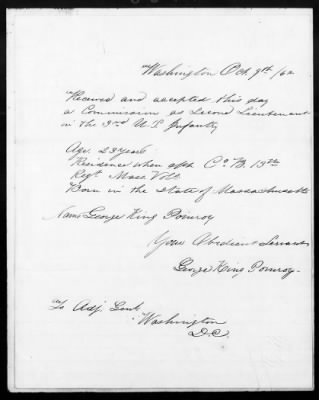 Washington Oct. 9th /62
Received and accepted this day
a Commission as Second Lieutenant
in the U.S. Infantry
Age. 23 years
Residence when apt'd Co. B. 13th
Regt Mass Vols.
Born in the State of Massachusetts
Name George King Pomroy
Your Obedient Servant
George King Pomroy.
To Adj. Genl.
Washington
D.C.